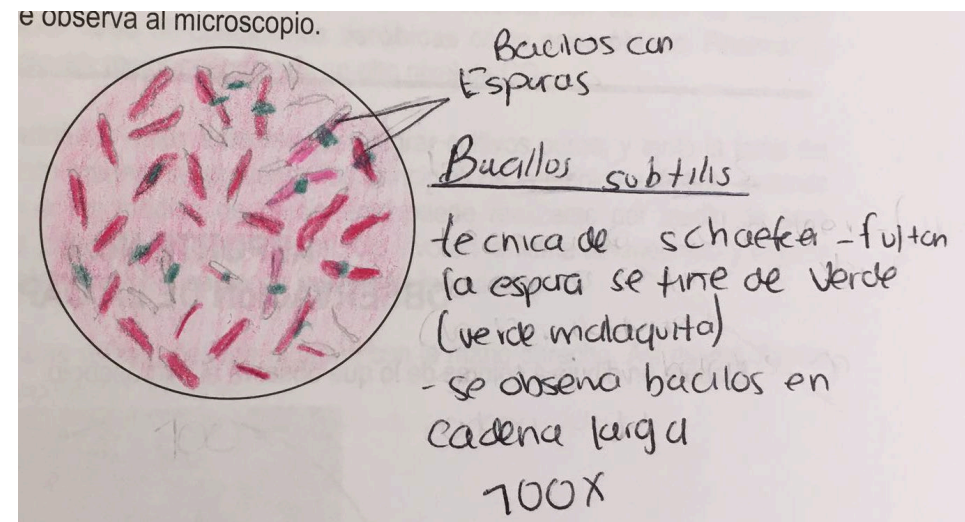 e observa al microscopio.
Bacilos con
Esporas
Bacillos subtilis
técnica de schaefer-fulton
la espora se tiñe de verde
(verde malaquita)
- se observa bacilos en
cadena larga
100X